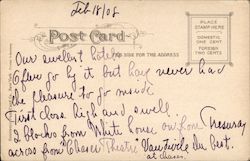 Feb 18/08
Post Card
THIS SIDE FOR THE ADDRESS
PLACE
STAMP HERE
DOMESTIC
ONE CENT
FOREIGN
TWO CENTS
Our swellest hotel
Often go by it but have never had
the pleasure to go inside
First class high and swell.
2 blocks from White house, one from Treasury
across from Chases Theatre Vaudeville the Best.
at chases.